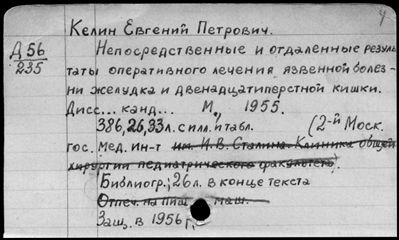 Келин Евгений Петрович.
Д 56
235
Непосредственные и отдаленные резуль-
таты оперативного лечения язвенной болез-
ни желудка и двенадцатиперстной кишки.
Дисс... канд... М., 1955.
386, 26, 33 л. с илл. и табл. (2-й Моск.
гос. мед. ин-т им. И. В. Сталина. Клиника общей
хирургии педиатрического факультета).
Библиогр.; 26 л. в конце текста
Отпеч. на пиш. маш.
Защ. в 1956 г.